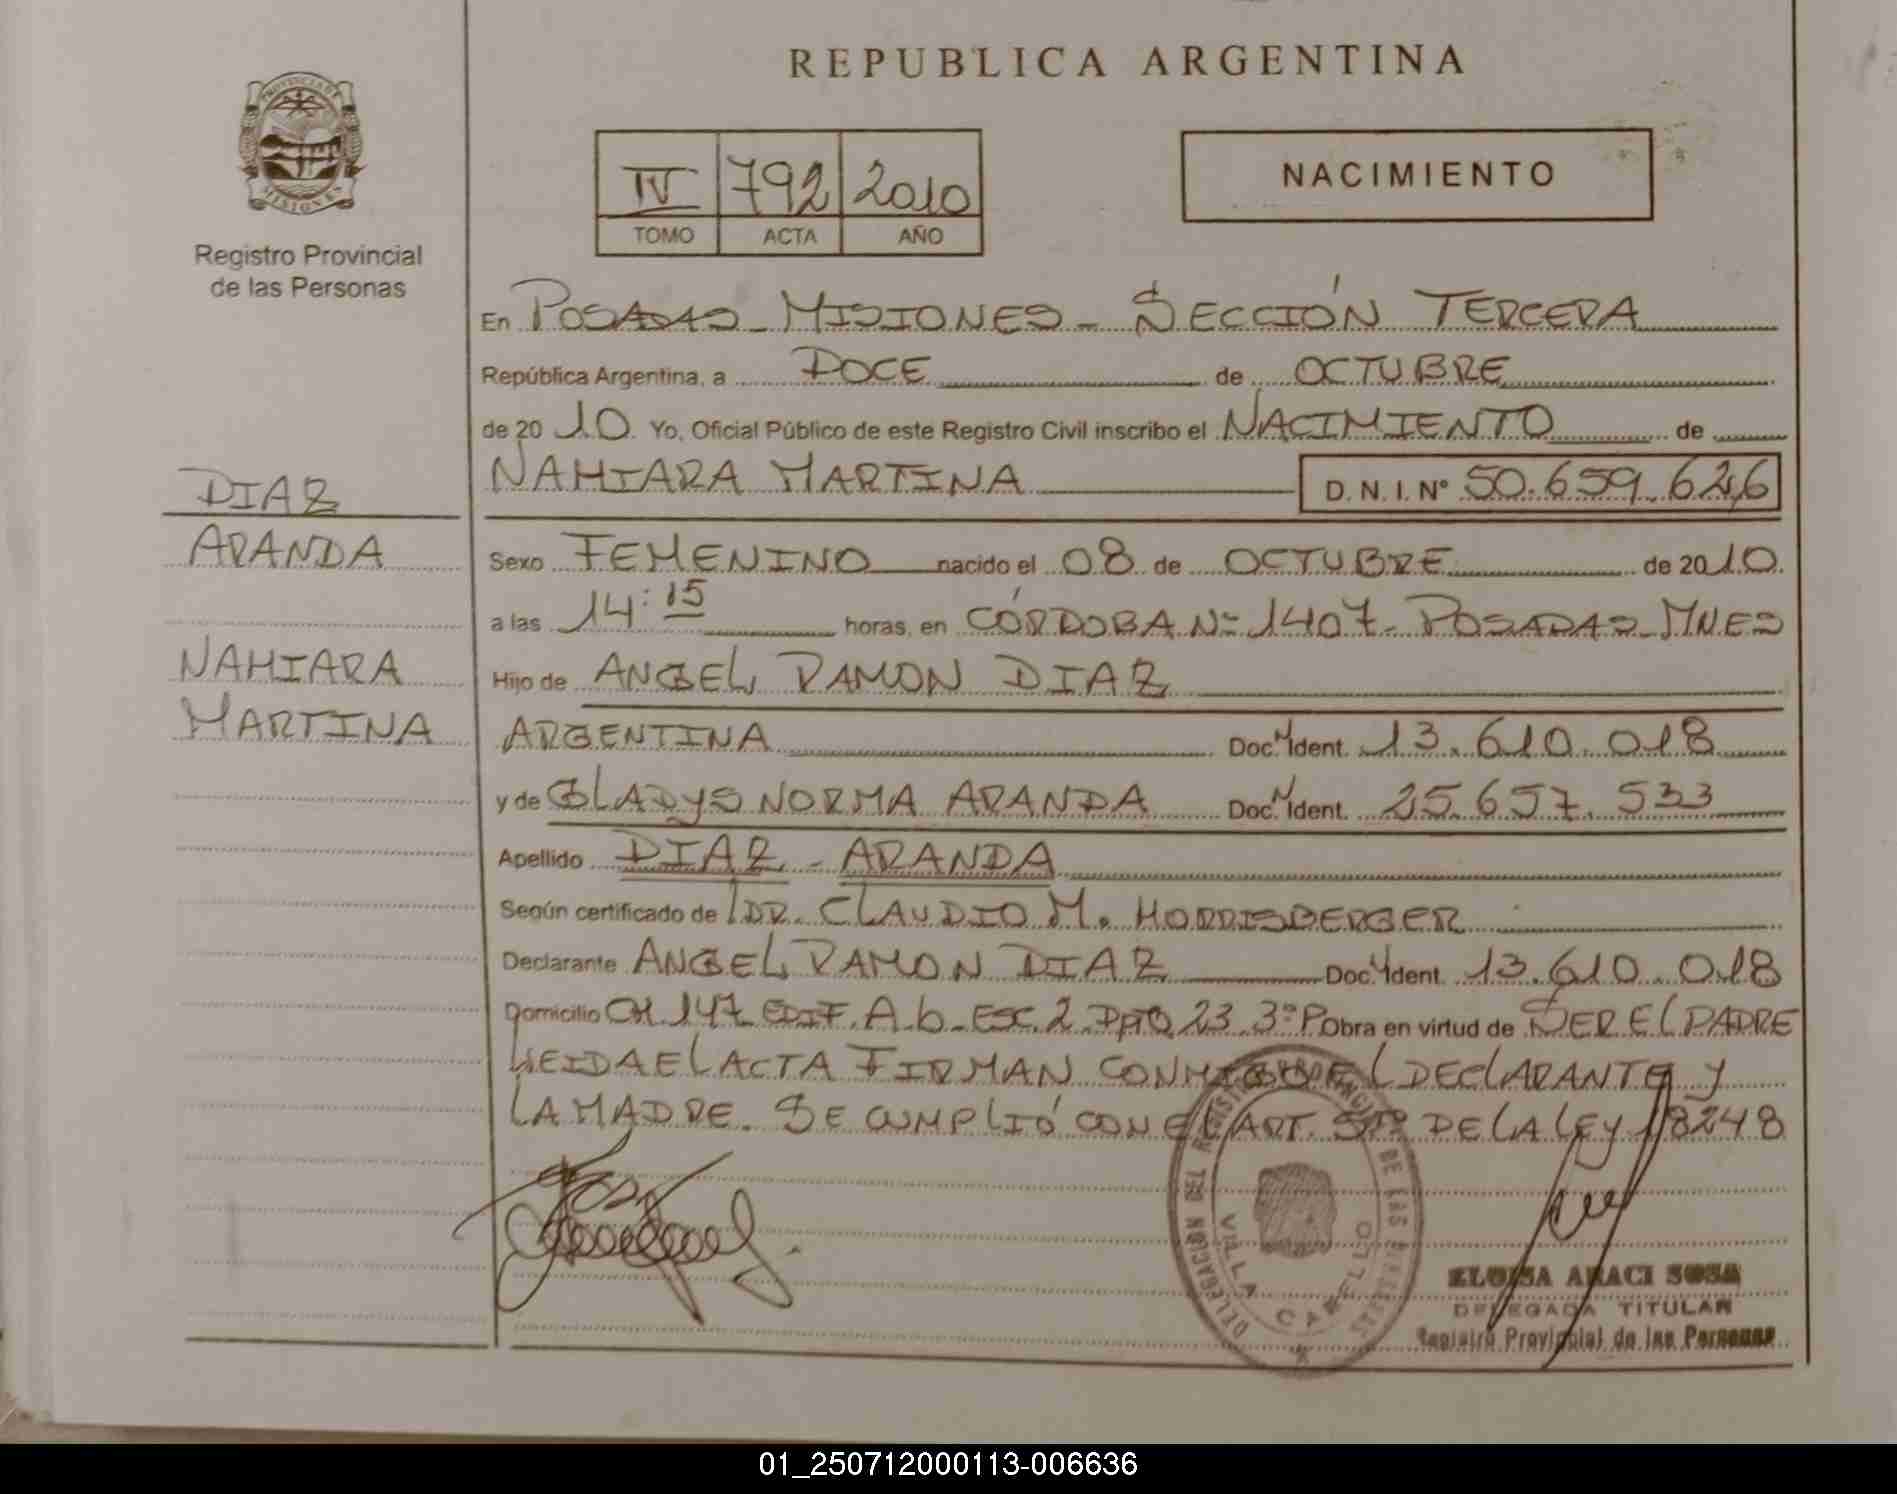 REPUBLICA ARGENTINA
PROVINCIA DE
MISIONES
Registro Provincial
de las Personas
IV 792 2010
TOMO ACTA AÑO
NACIMIENTO
En POSADAS - MISIONES - SECCIÓN TERCERA
República Argentina, a DOCE de OCTUBRE
de 2010 Yo, Oficial Público de este Registro Civil inscribo el NACIMIENTO de
NAHIARA MARTINA D.N.I.Nº 50.659.626
DIAZ
ARANDA
NAHIARA
MARTINA
Sexo FEMENINO nacido el 08 de OCTUBRE de 2010
a las 14:15 horas, en CÓRDOBA Nº 1407- POSADAS - MNES
Hijo de ANGEL RAMON DIAZ
ARGENTINA Doc. Ident. 13.610.018
y de GLADYS NORMA ARANDA Doc. Ident. 25.657.533
Apellido DIAZ - ARANDA
Según certificado de DR. CLAUDIO M. HORRISBERGER
Declarante ANGEL RAMON DIAZ Doc. Ident. 13.610.018
Domicilio CH.147 EDIF. A.6-ESC.2 DPTO 23 3º P obra en virtud de SER EL PADRE
LEIDA EL ACTA FIRMAN CONMIGO EL DECLARANTE Y
LA MADRE. SE CUMPLIÓ CON EL ART. 5TO DE LA LEY 18248
DELEGACIÓN DEL REGISTRO PROVINCIAL DE LAS PERSONAS
VILLA CABELLO
ELOISA ARACI SOSA
DELEGADA TITULAR
Registro Provincial de las Personas
01_250712000113-006636